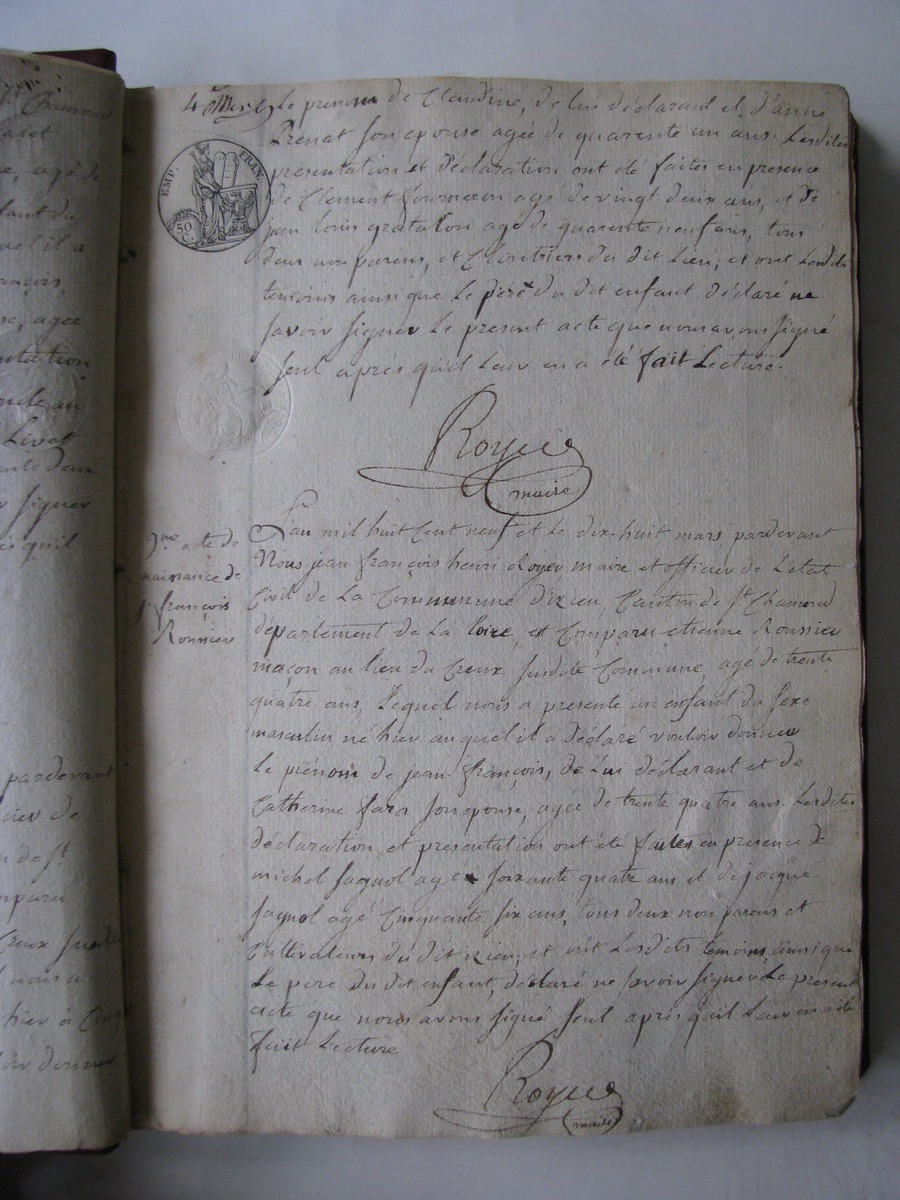 4
Le prenom de Claudine, de lui déclarant et d'anne
Prenat son epouse agée de quarente un ans. Lesdites
présentation et déclaration ont été faites en presence
EMP. FRAN.
50 C.
de Clement fourneron agé de vingt deux ans, et de
jean louis gratalon agé de quarente neuf ans, tous
deux non parens, et Cloutriers du dit Lieu; et ont Lesdits
temoins ainsi que Le pere du dit enfant déclaré ne
savoir signer Le present acte que nous avons signé
seul après qu'il Leur en a été fait Lecture.
Royer
maire
9me acte de
naissance de
j. françois
Roussier
L'an mil huit Cent neuf et Le dix-huit mars, pardevant
Nous jean françois henri Royer maire et officier de L'etat
Civil de La Commune d'izieu, Canton de St. Chamond
departement de La Loire, est Comparu etienne Roussier
maçon au lieu du Creux susdite Commune, agé de trente
quatre ans, Lequel nous a presenté un enfant du sexe
masculin né hier auquel il a Déclaré vouloir donner
Le prénom de jean françois, de Lui déclarant et de
Catherine fara son epouse, agée de trente quatre ans. Lesdites
déclaration et presentation ont été faites en presence de
michel fagnol agé soixante quatre ans et de jacque
fagnol agé Cinquante six ans, tous deux non parens et
Cultivateurs du dit izieu, et ont Lesdits temoins, ainsi que
Le pere du dit enfant, déclaré ne savoir signer Le present
acte que nous avons signé seul après qu'il Leur en a été
fait Lecture
Royer
maire